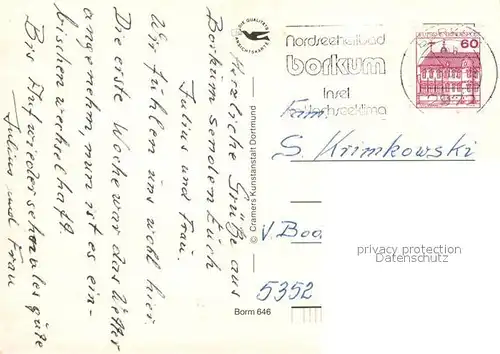 Herzliche Grüße aus
Borkum senden Euch
Julius und Frau.
Wir fühlen uns wohl hier.
Die erste Woche war das Wetter
angenehm, nun ist es ein-
bischen wechselhaft.
Bis Aufwiedersehn alles gute
Julius und Frau
© Cramers Kunstanstalt Dortmund
Borm 646
Nordseeheilbad
borkum
Insel
Hochseeklima
60
Fam.
S. Krimkowski
V. Boo
5352
privacy protection
Datenschutz